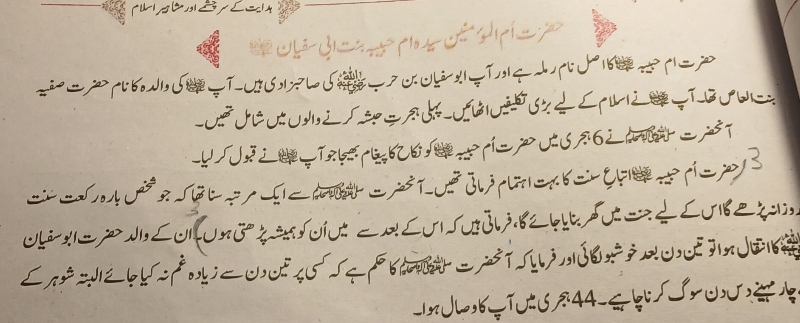 ہدایت کے سرچشمے اور مشاہیر اسلام
حضرت اُم المؤمنین سیدہ ام حبیبہ بنت ابی سفیان رضی اللہ عنہا
حضرت ام حبیبہ رضی اللہ عنہا کا اصل نام رملہ ہے اور آپ ابوسفیان بن حرب رضی اللہ عنہ کی صاحبزادی ہیں۔ آپ رضی اللہ عنہا کی والدہ کا نام حضرت صفیہ
بنت العاص تھا۔ آپ رضی اللہ عنہا نے اسلام کے لیے بڑی تکلیفیں اٹھائیں۔ پہلی ہجرتِ حبشہ کرنے والوں میں شامل تھیں۔
آنحضرت صلی اللہ علیہ وسلم نے 6 ہجری میں حضرت اُم حبیبہ رضی اللہ عنہا کو نکاح کا پیغام بھیجا جو آپ رضی اللہ عنہا نے قبول کر لیا۔
3
حضرت اُم حبیبہ رضی اللہ عنہا اتباعِ سنت کا بہت اہتمام فرماتی تھیں۔ آنحضرت صلی اللہ علیہ وسلم سے ایک مرتبہ سنا تھا کہ جو شخص بارہ رکعت سنت
روزانہ پڑھے گا اس کے لیے جنت میں گھر بنایا جائے گا، فرماتی ہیں کہ اس کے بعد سے میں اُن کو ہمیشہ پڑھتی ہوں۔ ان کے والد حضرت ابوسفیان
رضی اللہ عنہ کا انتقال ہوا تو تین دن بعد خوشبو لگائی اور فرمایا کہ آنحضرت صلی اللہ علیہ وسلم کا حکم ہے کہ کسی پر تین دن سے زیادہ غم نہ کیا جائے البتہ شوہر کے
چار مہینے دس دن سوگ کرنا چاہیے۔ 44 ہجری میں آپ کا وصال ہوا۔